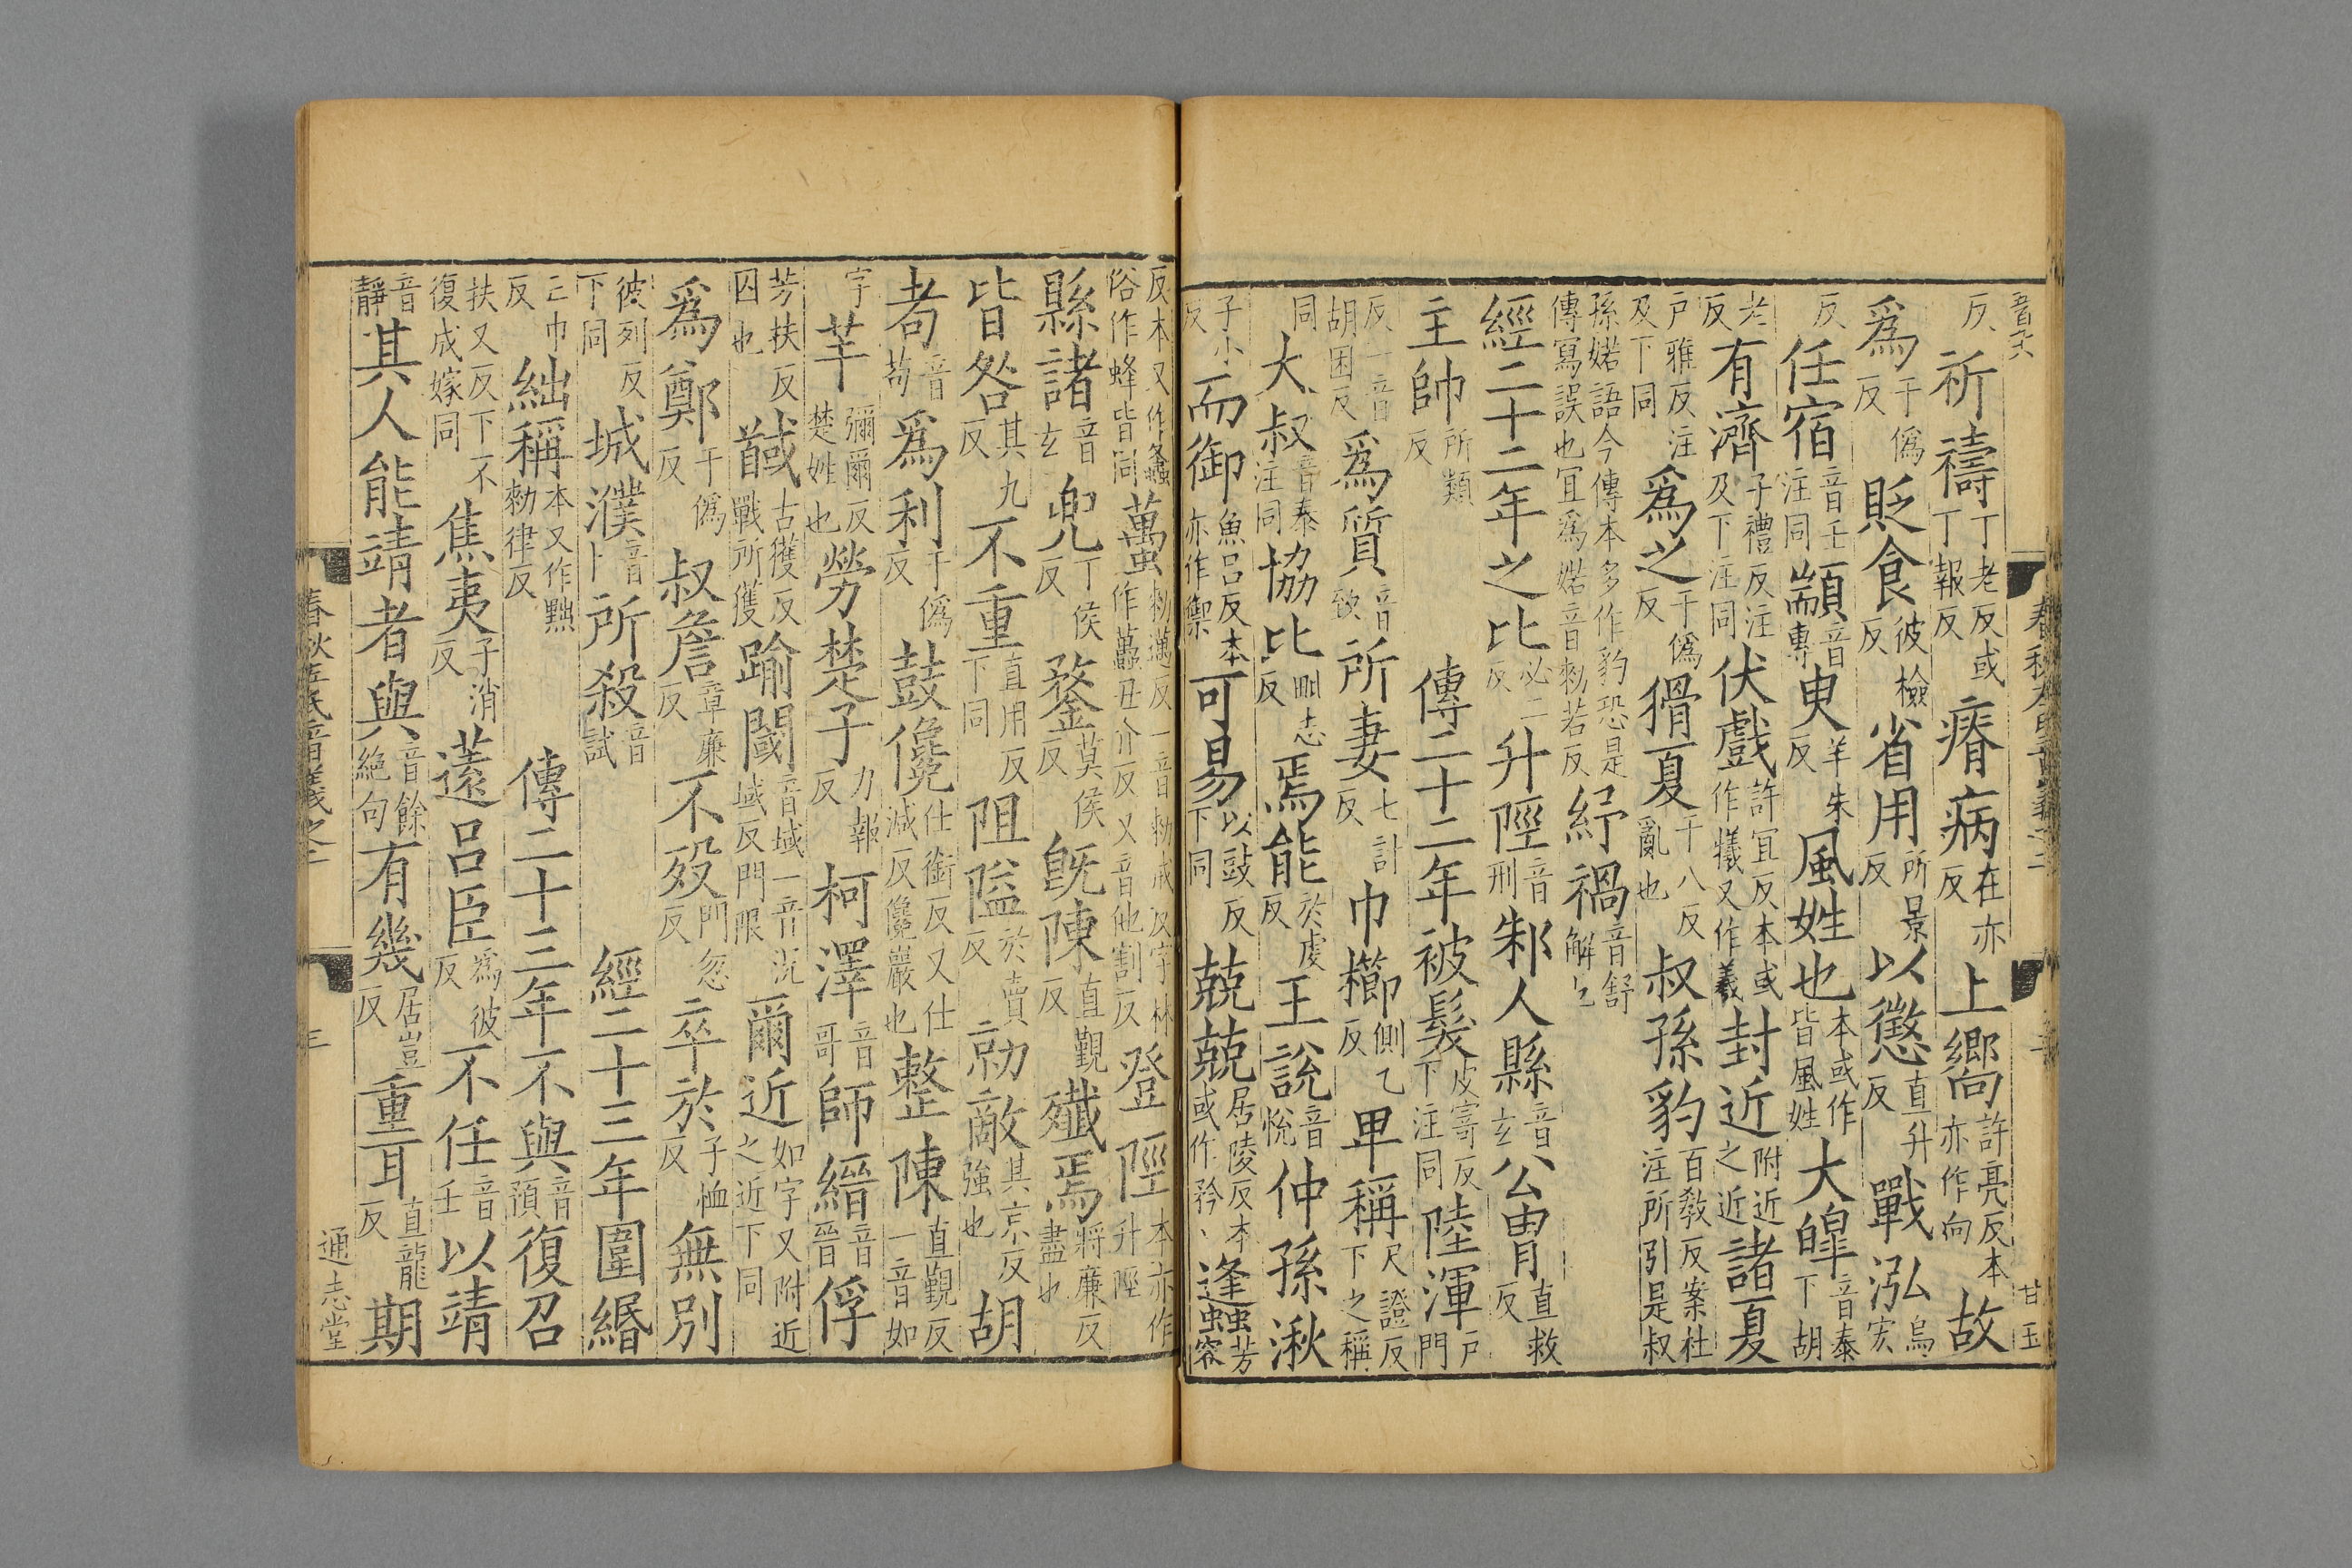 音六 春秋左氏音義之二 甘玉
反祈禱丁老反或丁報反瘠病在亦反上嚮許亮反本亦作向故
爲于偽反貶食彼檢反省用所景反以懲直升反戰泓烏宏
反任宿音壬注同顓音專臾羊朱反風姓也本或作皆風姓大皥音泰下胡
老反有濟子禮反注及下注同伏戲許宜反本或作犧又作羲封近附近之近諸夏
戶雅反注及下同爲之于偽反猾夏于八反亂也叔孫豹百教反案杜注所引是叔
孫婼語今傳本多作豹恐是傳寫誤也宜爲婼音勑若反紓禍音舒解也
經二十二年之比必二反升陘音刑邾人縣音玄公冑直救反
主帥所類反傳二十二年被髮皮寄反下注同陸渾戶門
反一音胡困反爲質音致所妻七計反巾櫛側乙反卑稱尺證反下之稱
同大叔音泰注同協比毗志反焉能於虔反王說音悅仲孫湫
子小反而御魚呂反本亦作禦可易以豉反下同兢兢居陵反本或作矜〻蠭芳容
反本又作螽俗作蜂皆同蠆勑邁反一音勑戒反字林作蠆丑介反又音他割反登陘本亦作升陘
縣諸音玄兜丁侯反鍪莫侯反旣陳直覲反殲焉將廉反盡也
皆咎其九反不重直用反下同阻隘於賣反勍敵其京反強也胡
耇音苟爲利于偽反鼓儳仕銜反又仕減反儳巖也整陳直覲反一音如
字芈彌爾反楚姓也勞楚子力報反柯澤音哥師縉音晉俘
芳扶反囚也馘古獲反戰所獲踰閾音域一音況域反門限爾近如字又附近之近下同
爲鄭于偽反叔詹章廉反不歿門忽反卒於子恤反無別
彼列反下同城濮音卜所殺音試經二十三年圍緡
亡巾反絀稱本又作黜勑律反傳二十三年不與音預復召
扶又反下不復成嫁同焦夷子消反薳呂臣爲彼反不任音壬以靖
音靜其人能靖者與音餘絕句有幾居豈反重耳直龍反期
春秋左氏音義之二 通志堂